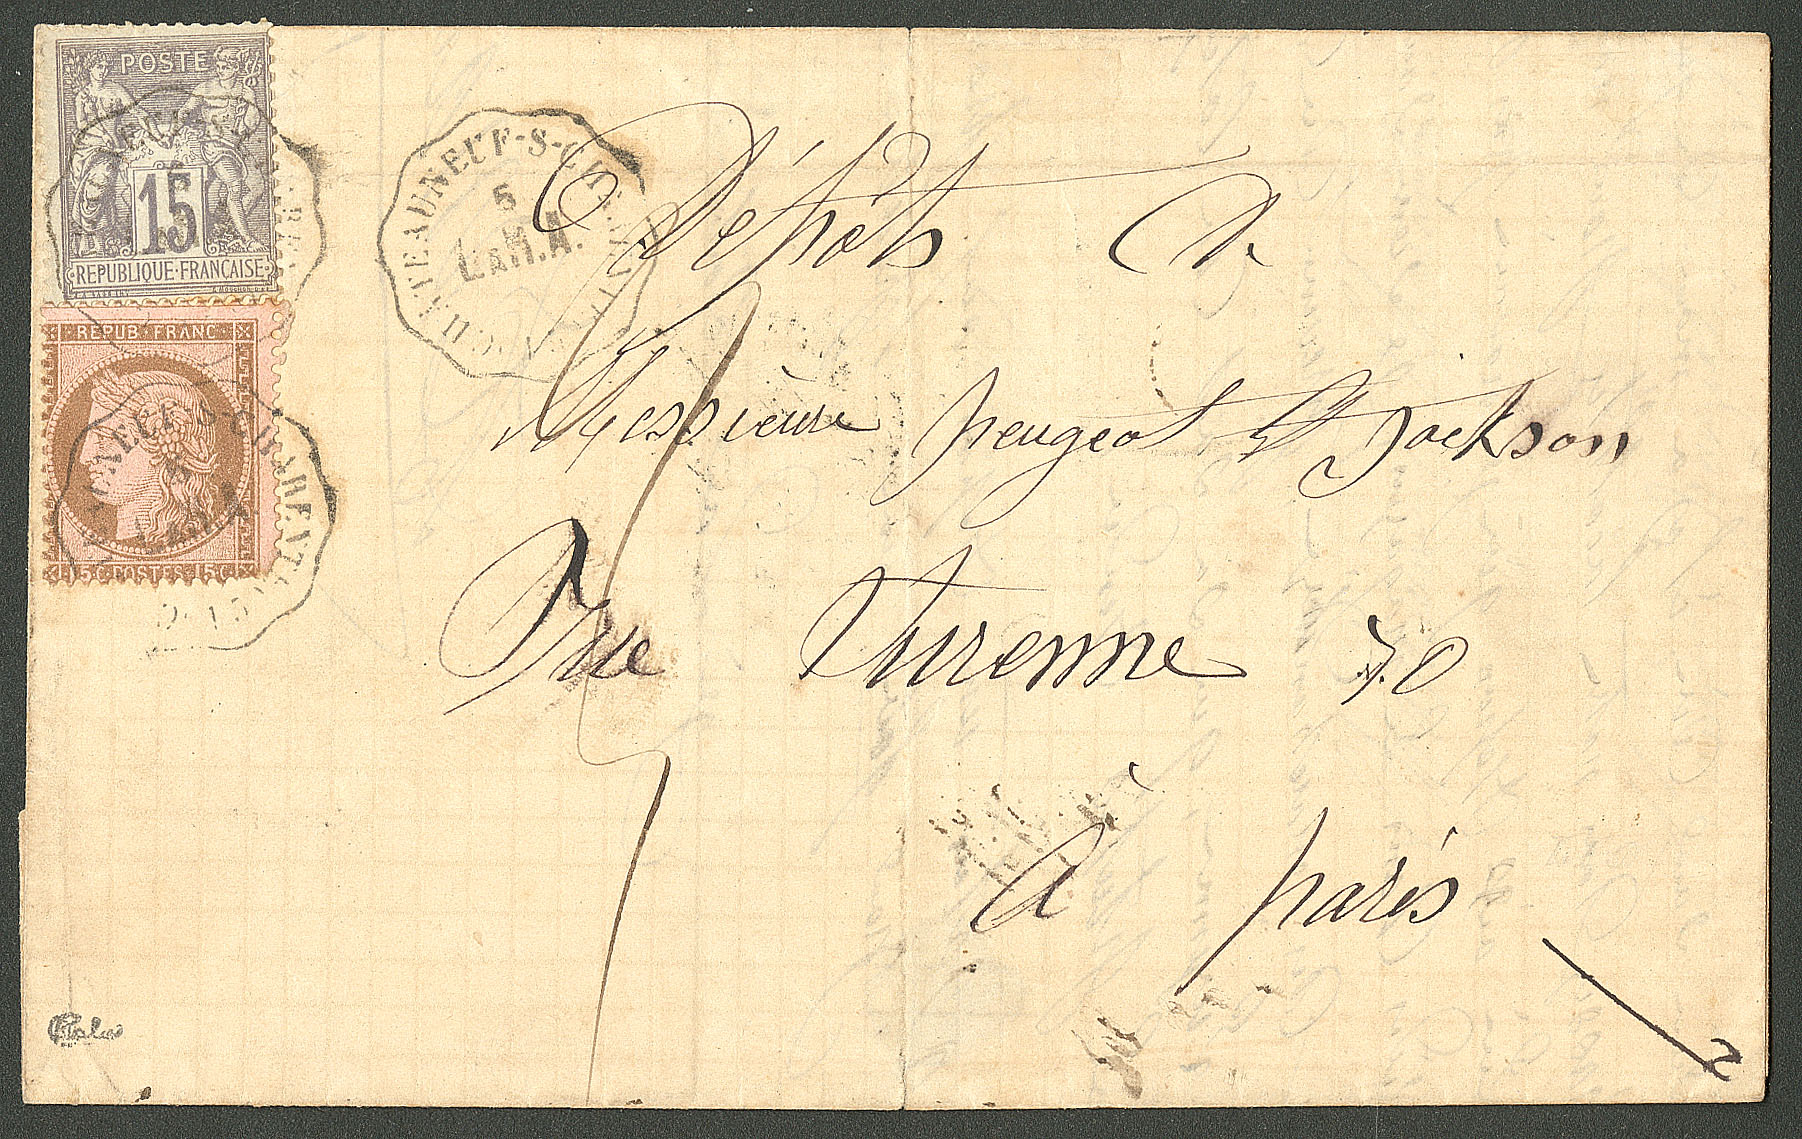 POSTE
15
REPUBLIQUE·FRANÇAISE
REPUB·FRANC
15C·POSTES·15C
CHATEAUNEUF-S-CHARENTE
5
L.aM.A.
NEUF-S-CHARENT
Dépôts De
Messieurs peugeot Et Jackson
Rue Turenne 70
à paris